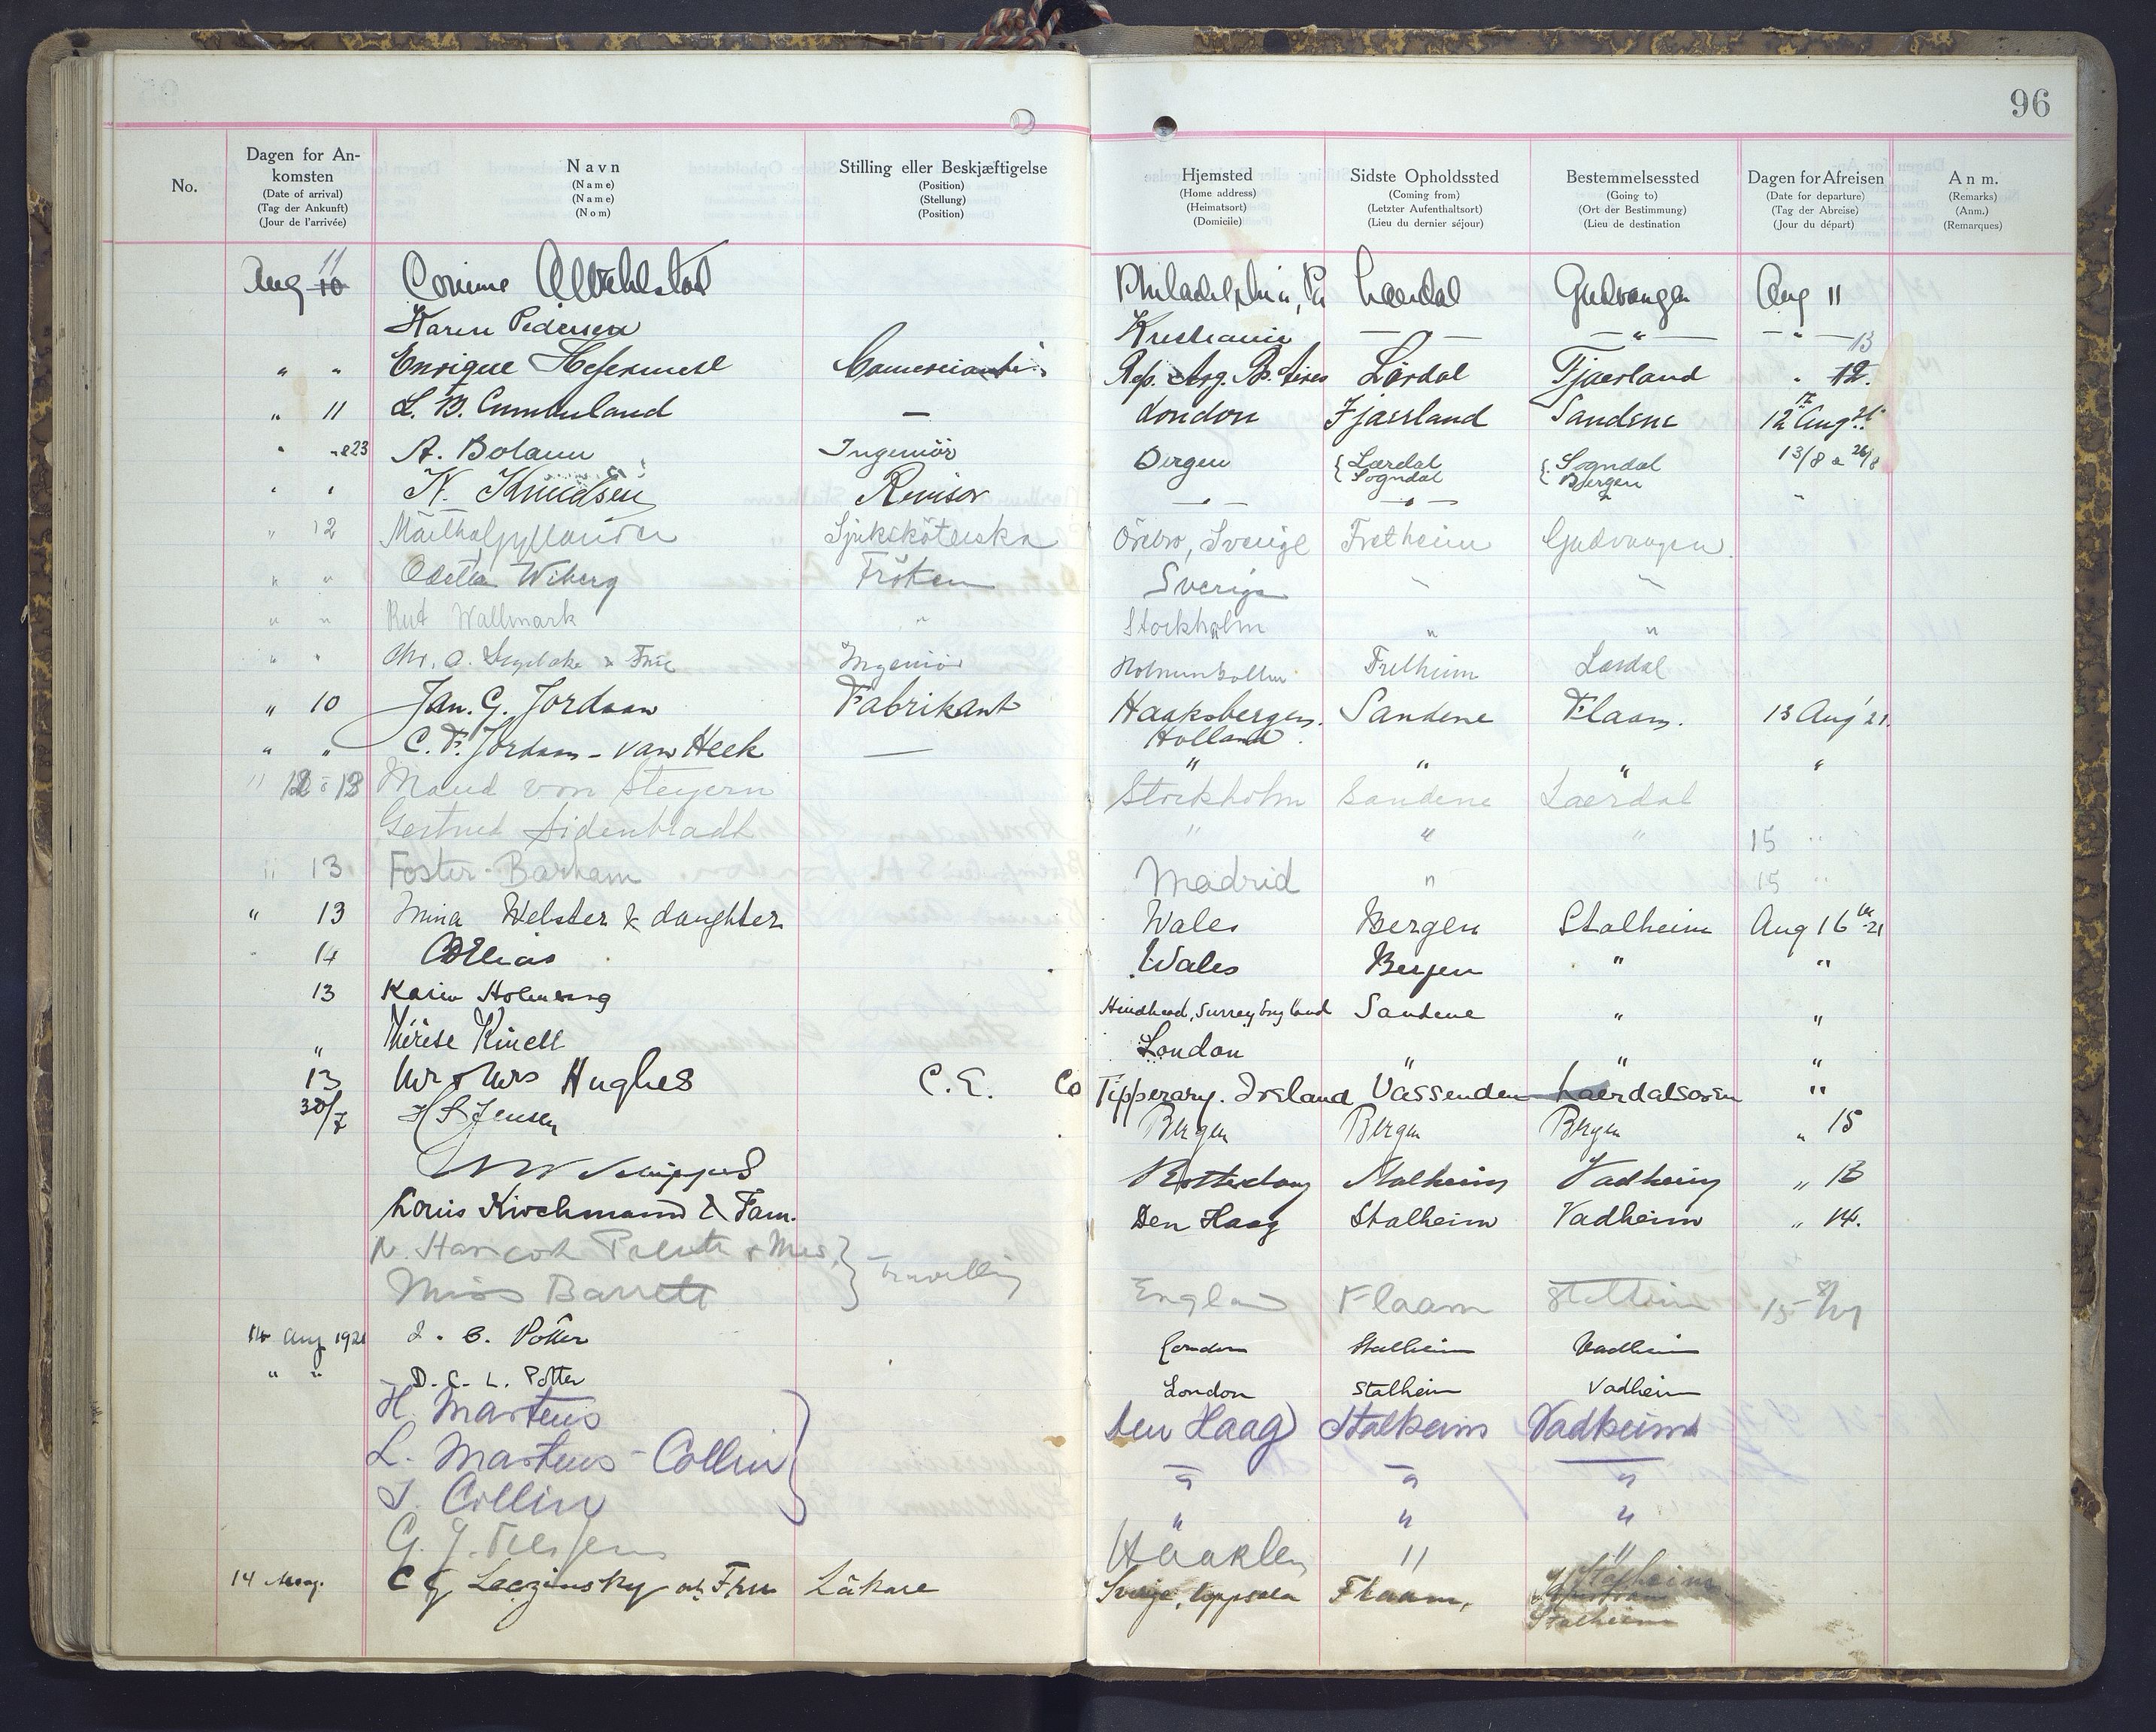 96
No.
Dagen for An-
komsten
(Date of arrival)
(Tag der Ankunft)
(Jour de l'arrivée)
Navn
(Name)
(Name)
(Nom)
Stilling eller Beskjæftigelse
(Position)
(Stellung)
(Position)
Hjemsted
(Home address)
(Heimatsort)
(Domicile)
Sidste Opholdssted
(Coming from)
(Letzter Aufenthaltsort)
(Lieu du dernier séjour)
Bestemmelsessted
(Going to)
(Ort der Bestimmung)
(Lieu de destination
Dagen for Afreisen
(Date for departure)
(Tag der Abreise)
(Jour du départ)
Anm.
(Remarks)
(Anm.)
(Remarques)
Aug 10 11 Corinne Philadelphia, Pa Laerdal Gudvangen Aug 11
Karen Pedersen Kristiania — " — — " — — " — 13
" " Enrique Rep. Arg. Bs. Aires Lärdal Fjaerland " 12.
" 11 L. B. Cumberland — London Fjaerland Sandene 12 Aug 21
" A. Bolann Ingeniör Bergen { Lærdal Sogndal { Sogndal Bergen 13/8 a 26/8
" " K. Knudsen Revisor — " — — " — " "
" 12 Sjuksköterska Örebro, Sverige Fretheim Gudvangen
" " Odella Wiberg Fröken Sverige " "
" " Rut Wallmark " Stockholm " "
" " Chr. a. & Frue Ingeniör Holmenkollen Fretheim Lærdal
" 10 Jan. G. Jordaan Fabrikant Haaksbergen. Holland. Sandene Flaam. 13 Aug '21.
" " C. F. Jordaan - van Heek — " " " "
" 12 13 Maud von Steyern Stockholm Sandene Laerdal
Gertrud Sidenbladh " " " 15 "
" 13 Foster-Barham Madrid " 15 "
" 13 Mina Webster & daughter Wales Bergen Stalheim Aug 16th 21
" 14 Elias Wales Bergen " "
13 Karin Holmberg Hindhead, Surrey England Sandene " "
" Thérèse Kinell London " " "
13 Mr & Mrs Hughes C. E. Co Tipperary. Ireland Vassenden Laerdalsören "
30/7 H S Jensen Bergen Bergen Bergen " 15
Rotterdam Stalheim Vadheim " 13
Louis Kirchmann & Fam. Den Haag Stalheim Vadheim " 14.
N. Hancock & Mrs. } Travelling
Miss Barrett England Flaam 15
14 Aug 1921 J. C. Potter London Stalheim Vadheim
" " D. C. L. Potter London Stalheim Vadheim
H. Martens Den Haag Stalheim Vadheim
L. Martens - Collin " " "
J. Collin " " "
G. J. " "
14 Aug. C G Leczinsky och Fru Läkare Sverige, Uppsala Flaam, Stalheim
Stalheim